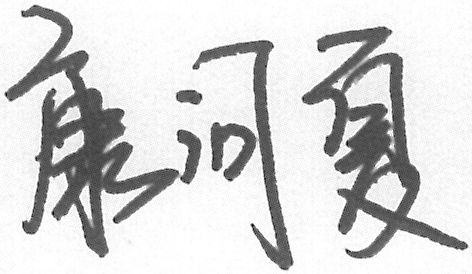 康河夏